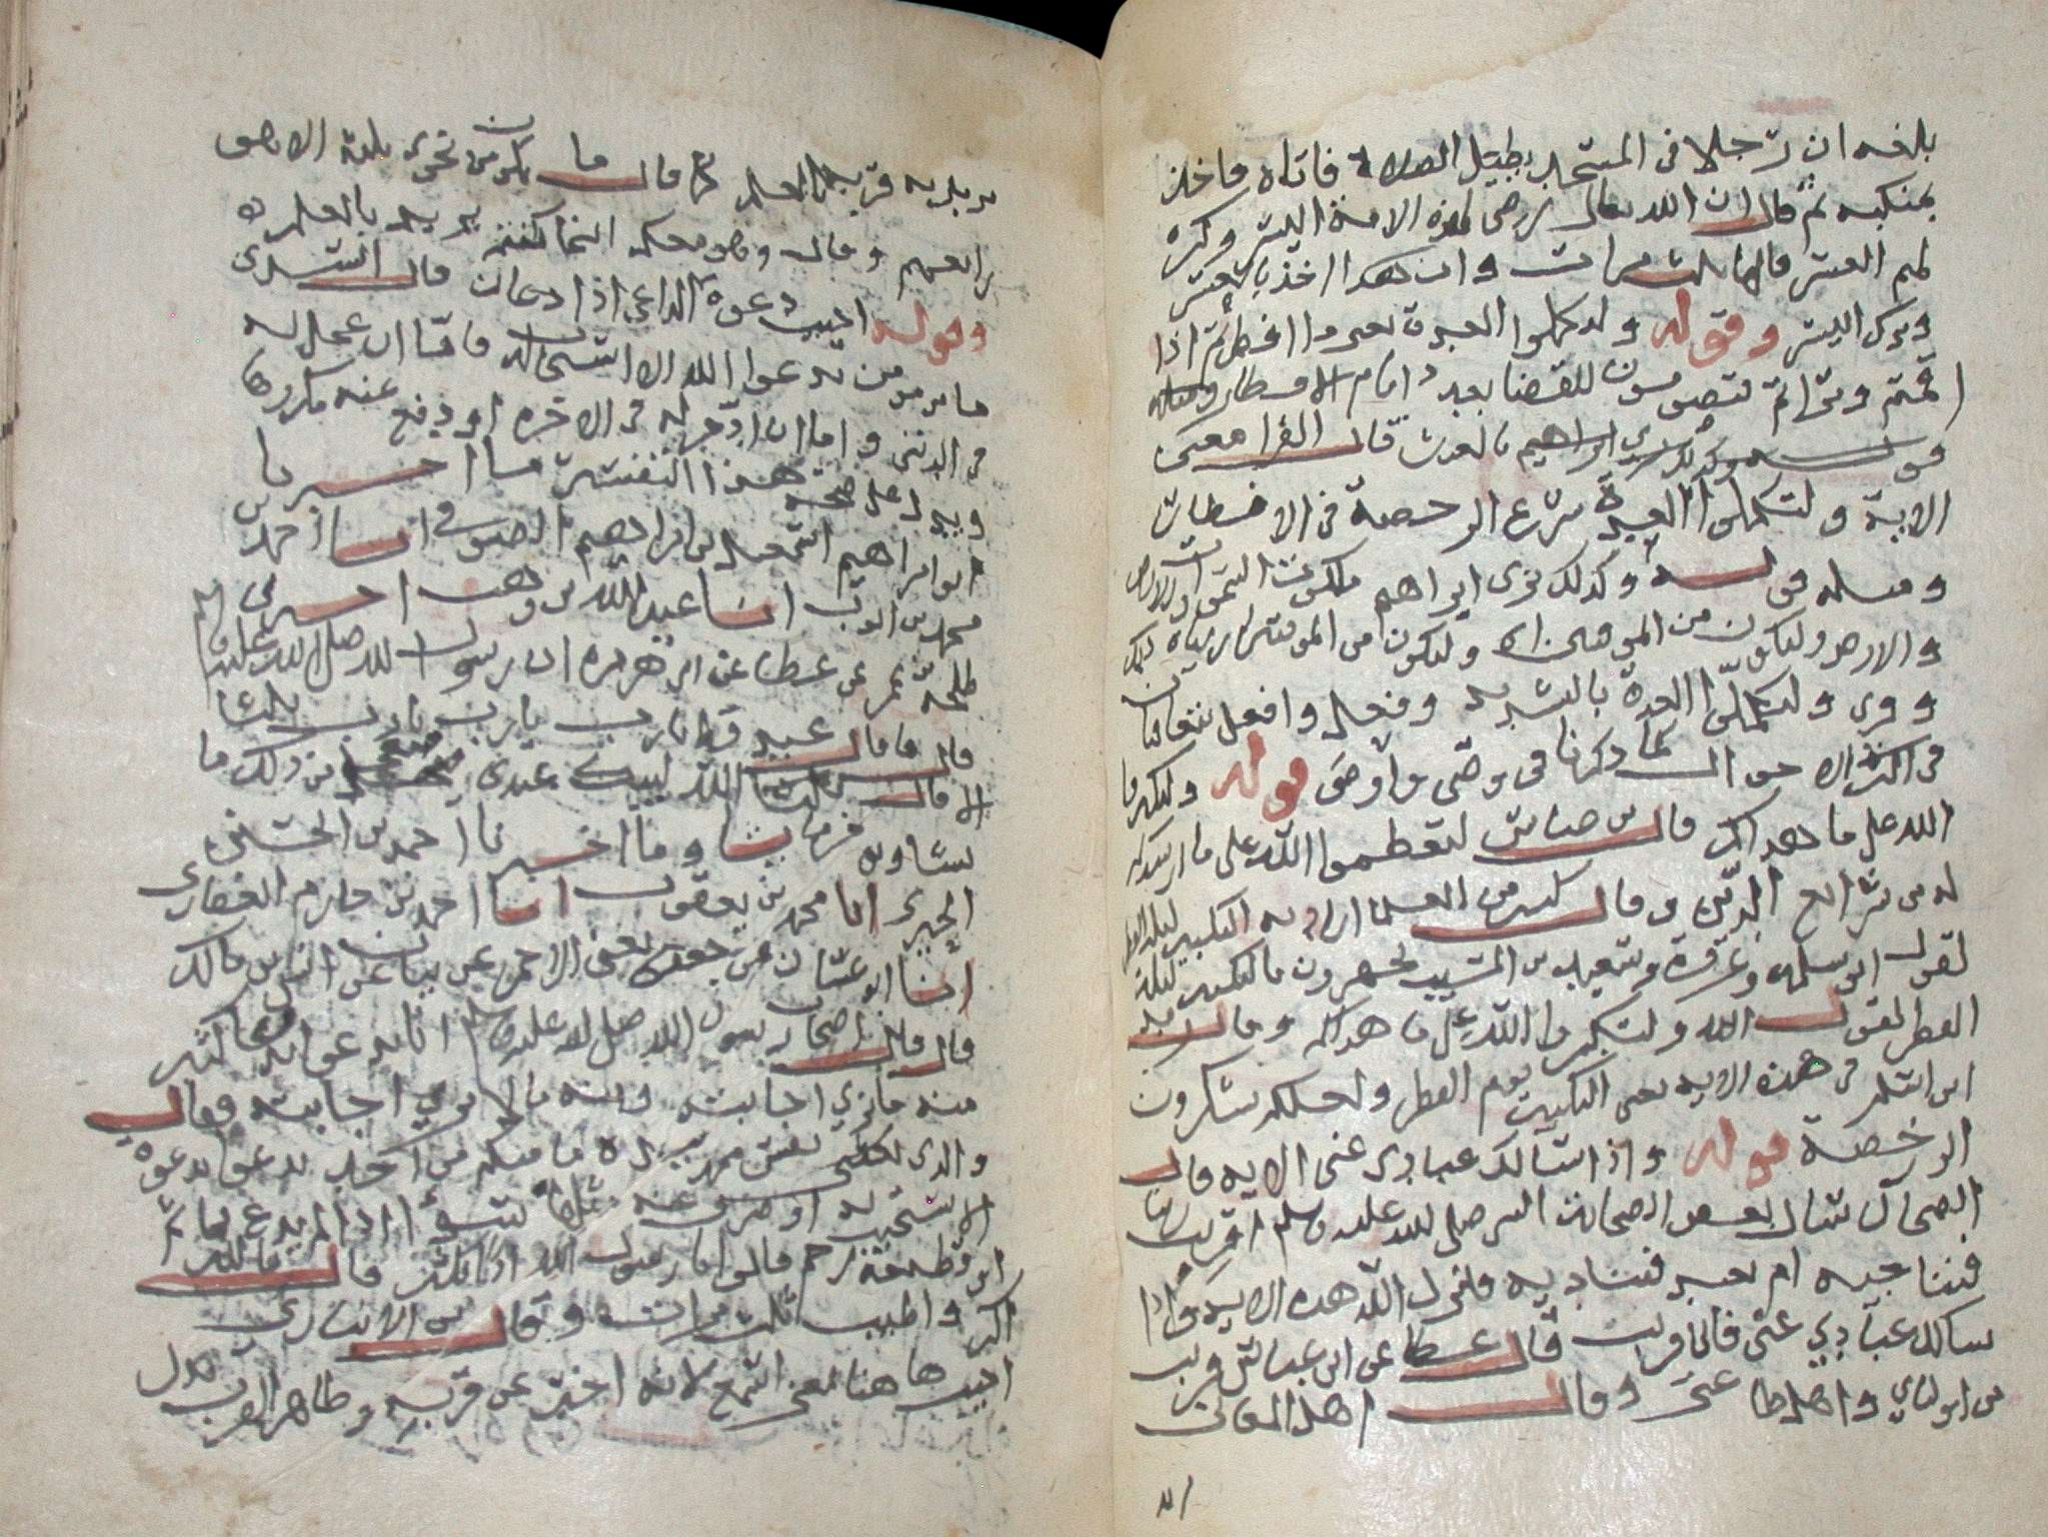 بلغه ان رجلا في المسجد يطيل الصلاة فاتاه فاخذ
بمنكبيه ثم قال ان الله تعالى رضي لهذه الامة اليسر وكره
لهم العسر قالها ثلث مرات وان هذا اخذ بالعسر
وترك اليسر وقوله ولتكملوا العدة افطرتم اذا
للقضا بعدد ايام الافطار
قال الفرا معنى
الاية ولتكملوا العدة شرع الرخصة في الافطار
ومثله قوله وكذلك نرى ابراهيم ملكوت السموات والارض
والارض وليكون من الموقنين وليكون من الموقنين اريناه ذلك
وقرى ولتكملوا العدة بالتشديد وفعل وافعل يتعاقبان
في اكثر الاحوال كما ذكرنا في وصى واوصى قوله ولتكبروا
الله على ما هداكم قال بن عباس لتعظموا الله على ما ارشدكم
له من شرائع الدين وقال كثير من العلما اراد به التكبير ليلة الفطر
ابو سلمه وعروة وسعيد بن المسيب يجهرون بالتكبير ليلة
الفطر لقول الله ولتكبروا الله على ما هداكم وقال زيد
ابن اسلم في هذه الايه يعني التكبير يوم الفطر ولعلكم تشكرون
الرخصة قوله واذا سالك عبادي عني الايه قال
الضحاك سال بعض الصحابة النبي صلى الله عليه وسلم اقريب ربنا
فنناجيه ام بعيد فنناديه فانزل الله هذه الاية واذا
سالك عبادي عني فاني قريب قال عطا عن ابن عباس قريب
من اوليائي واهل طاعتي وقال اهل المعاني
يريد به قربه بالعلم كما قال ما يكون من نجوى ثلثة الا هو
رابعهم وقال وهو معكم اينما كنتم يريد بالعلم
وقوله اجيب دعوة الداعي اذا دعان قال السدي
ما من مومن يدعوا الله الا استجاب له فاما ان عجل له
في الدنيا واما ان ادخر له في الاخرة او دفع عنه مكروها
ويدل على صحة هذا التفسير ما اخبرنا
ابو ابراهيم اسمعيل بن ابراهيم الصوفي انا احمد بن
محمد بن ايوب انا عبد الله بن وهب اخبرني
طلحة بن عمر عن عطا عن ابي هريرة ان رسول الله صلى الله عليه وسلم
قال ما قال عبد قط يارب يارب يارب ثلثا
الا قال الله لبيك عبدي فيعجل من ذلك ما
يشا ويوخر ما يشا وما اخبرنا احمد بن الحسن
الحيري انا محمد بن يعقوب انا احمد بن حازم الغفاري
انا ابو غسان عن جعفر يعني الاحمر عن بيان عن انس بن مالك
قال قال اصحاب رسول الله صلى الله عليه وسلم انا ندعوا بدعا كثير
منه ما نرى اجابته ومنه ما لا نرى اجابته فقال
والذي نفس محمد بيده ما منكم من احد يدعو بدعوة
الا استجيب له او صرف عنه مثلها سوأ اذا لم يدع بماثم
او قطيعة رحم قالوا يا رسول الله اذا نكثر قال الله
اكبر واطيب ثلث مرات وقال بن الانباري
اجيب ها هنا بمعنى اسمع لانه اخبر عن قربه وظاهر القرب يدل